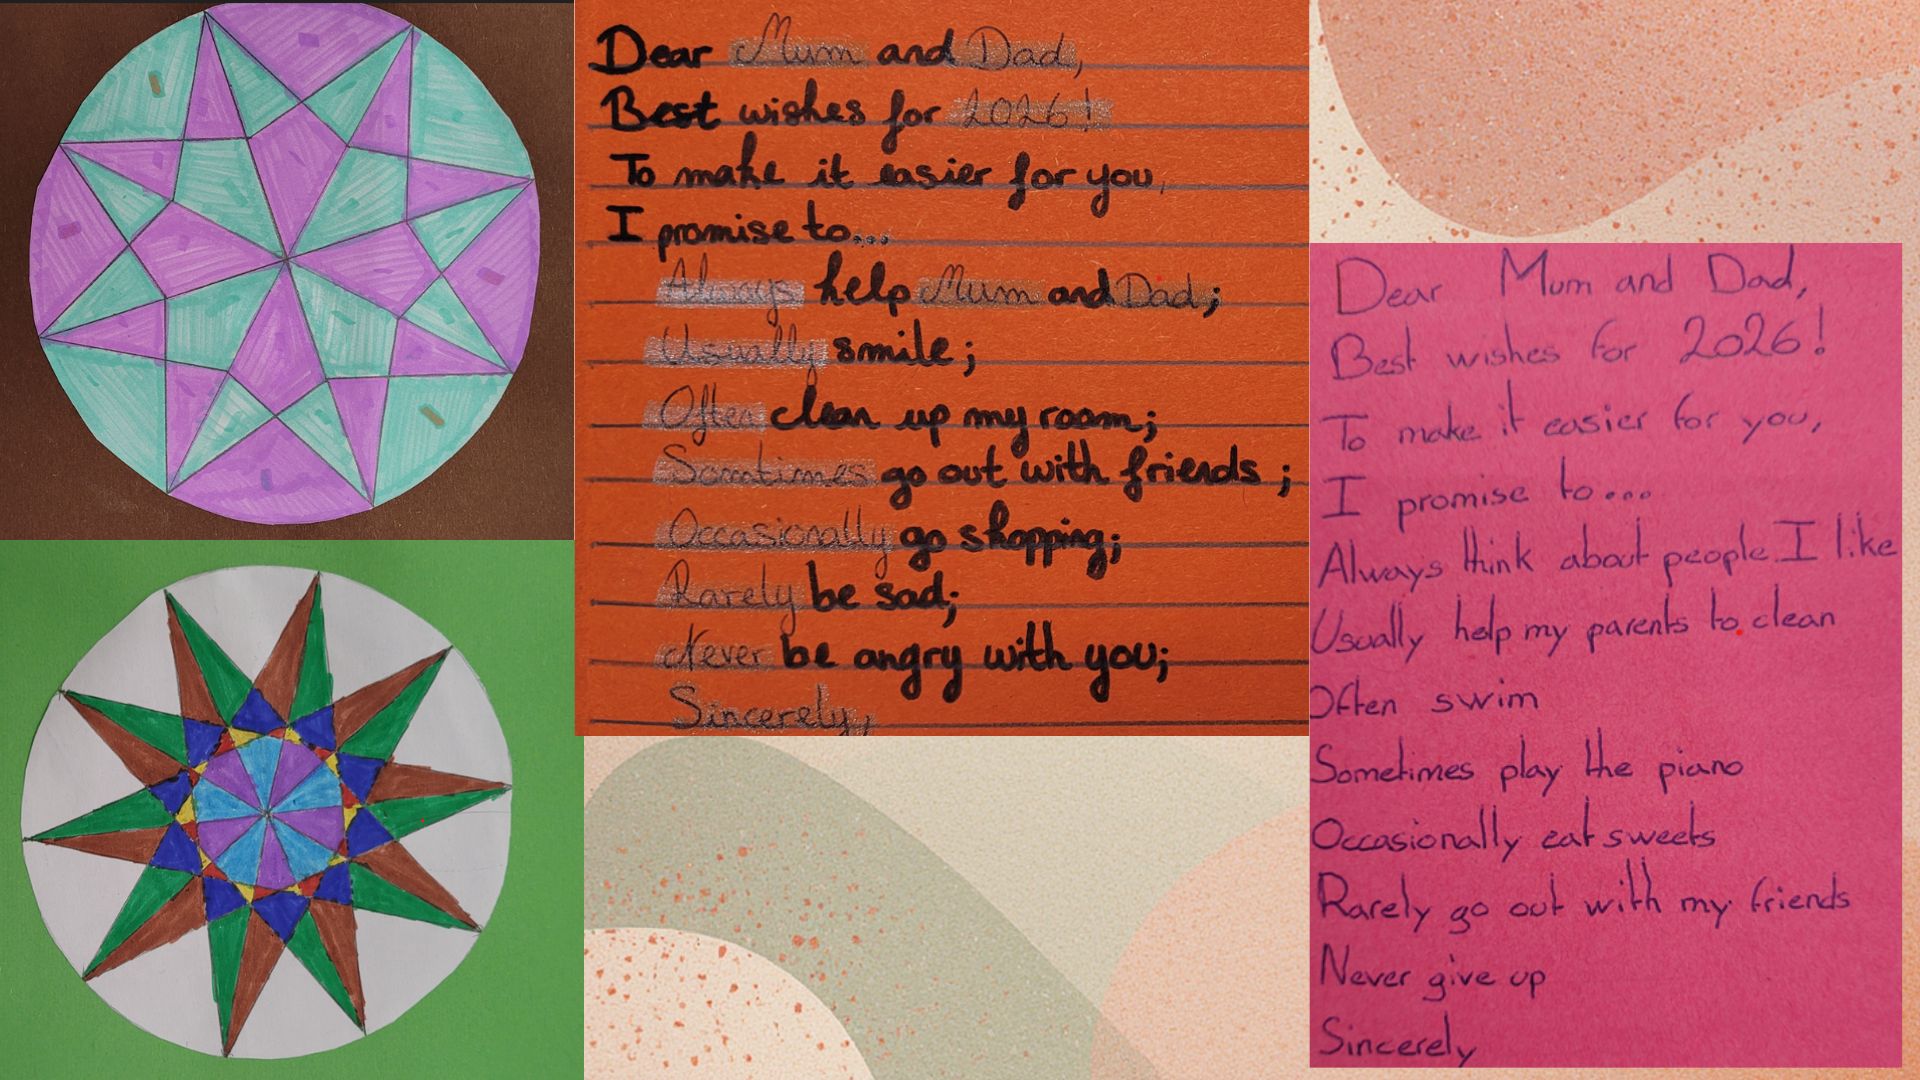 Dear Mum and Dad,
Best wishes for 2026!
To make it easier for you,
I promise to...
Always help Mum and Dad;
Usually smile;
Often clean up my room;
Somtimes go out with friends;
Occasionally go shopping;
Rarely be sad;
Never be angry with you;
Sincerely,
Dear Mum and Dad,
Best wishes for 2026!
To make it easier for you,
I promise to...
Always think about people I like
Usually help my parents to clean
Often swim
Sometimes play the piano
Occasionally eat sweets
Rarely go out with my friends
Never give up
Sincerely